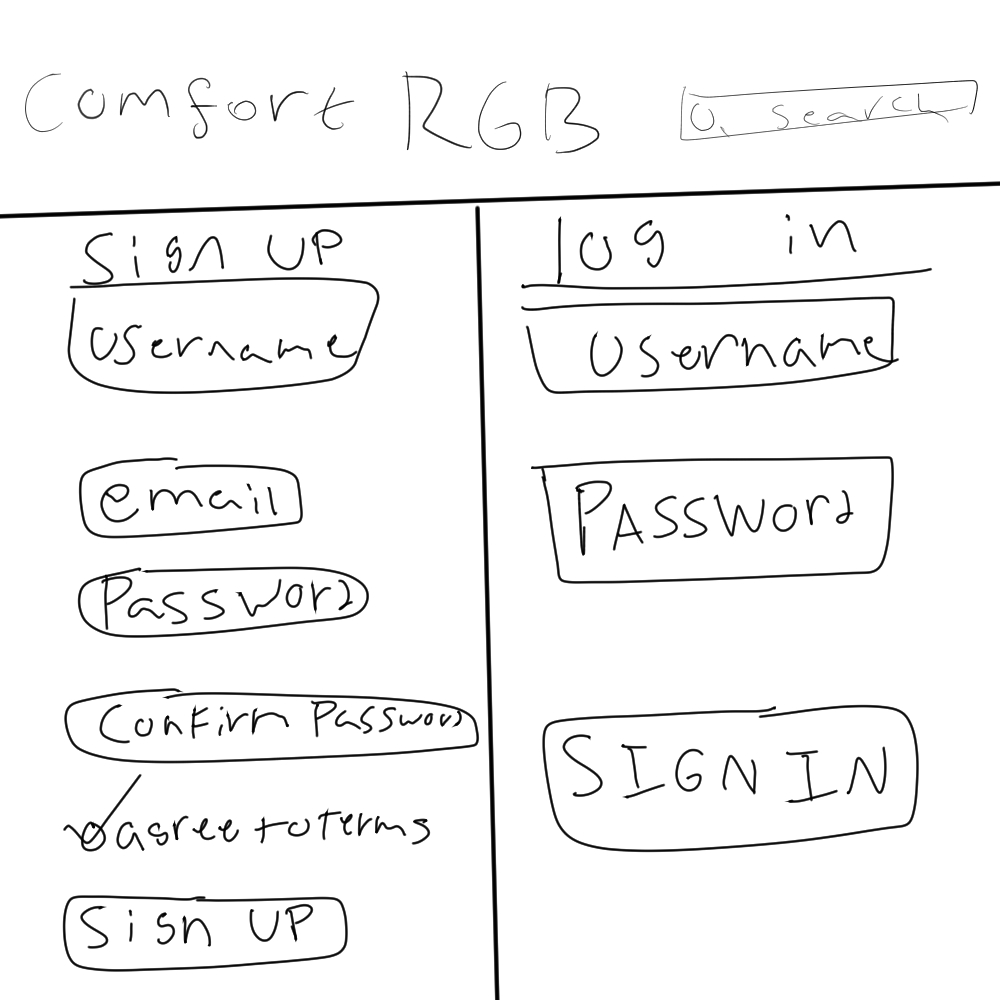 Comfort RGB
search
Sign UP
Username
email
Password
Confirm Password
agree to terms
Sign UP
log in
Username
PASSWord
SIGN IN